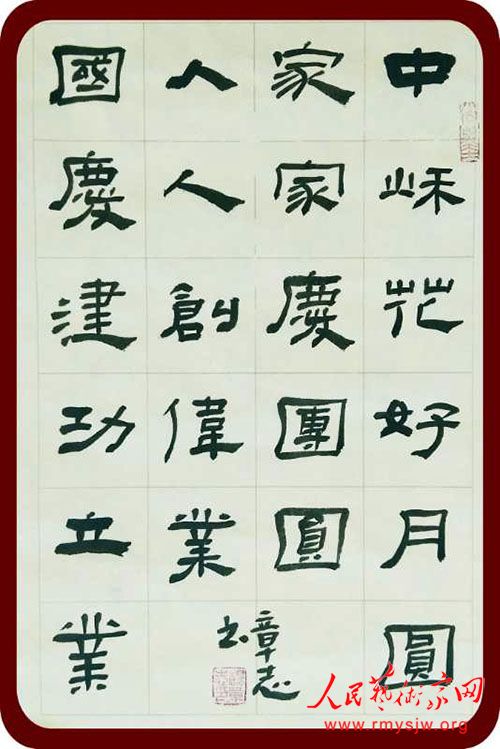 中秌花好月圓
家家慶團圓
人人創偉業
國慶建功立業
章志
书
人民藝術家网
www.rmysjw.org